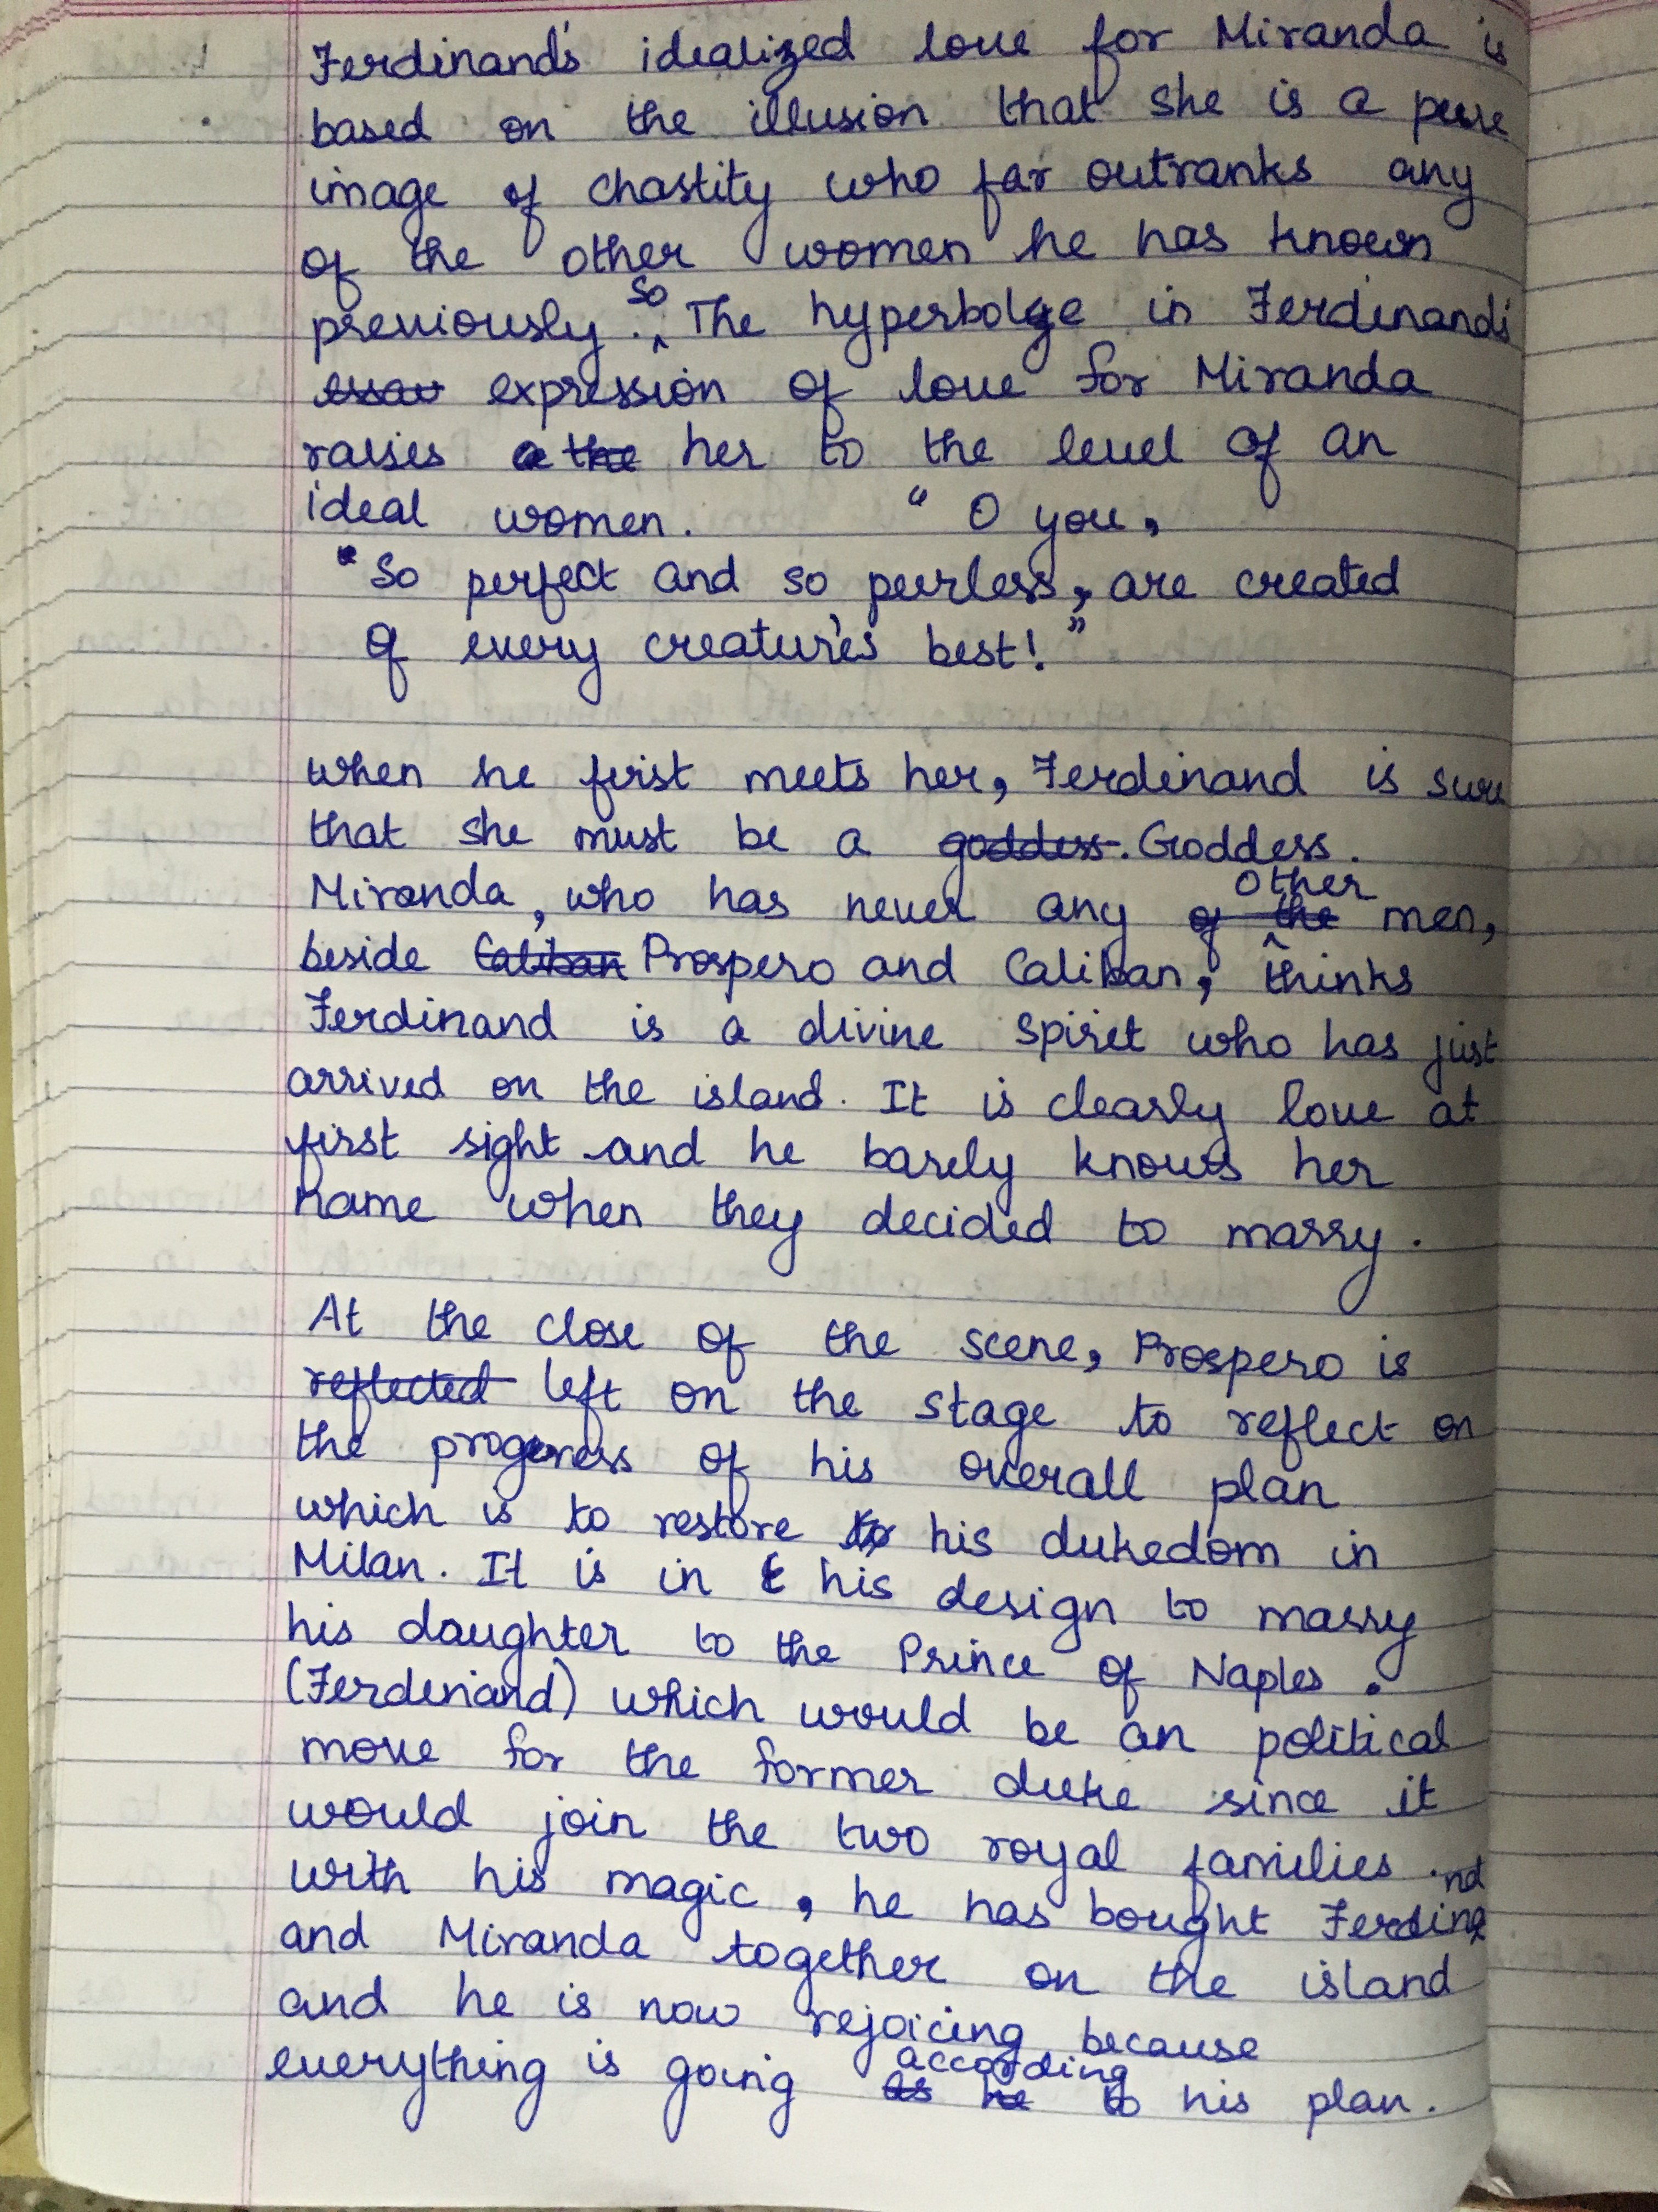 Ferdinand's idealized love for Miranda is
based on the illusion that she is a pure
image of chastity who far outranks any
of the other women he has known
previously. So The hyperbolge in Ferdinand's
expression of love for Miranda
raises her to the level of an
ideal women. " O you,
"So perfect and so peerless, are created
Of every creature's best!"
when he first meets her, Ferdinand is sure
that she must be a goddess. Goddess.
Miranda, who has never any of the other men,
beside Caliban Prospero and Caliban, thinks
Ferdinand is a divine spirit who has just
arrived on the island. It is clearly love at
first sight and he barely knows her
name when they decided to marry.
At the close of the scene, Prospero is
reflected left on the stage to reflect on
the progress of his overall plan
which is to restore his dukedom in
Milan. It is in his design to marry
his daughter to the Prince of Naples.
(Ferdinand) which would be an political
move for the former duke since it
would join the two royal families.
with his magic, he has bought Ferdinand
and Miranda together on the island
and he is now rejoicing because
everything is going as he according to his plan.